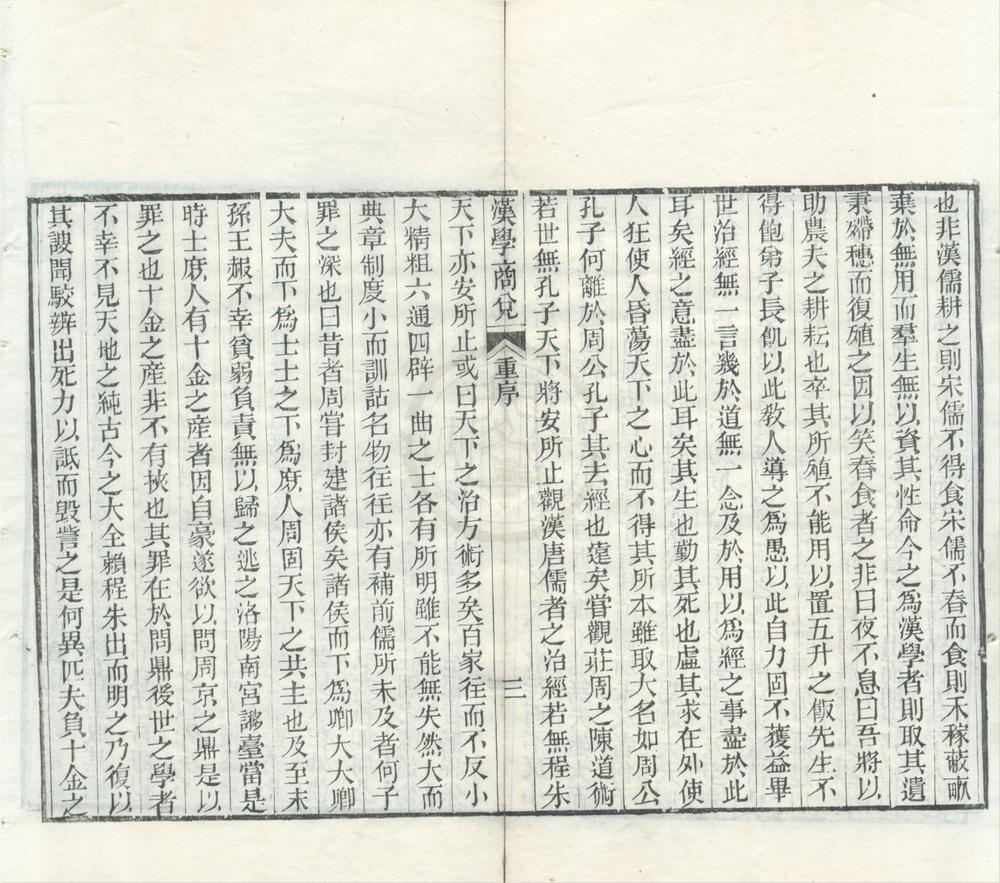 也非漢儒耕之則宋儒不得食宋儒不舂而食則禾稼蔽畝
棄於無用而羣生無以資其性命今之爲漢學者則取其遺
秉滯穗而復殖之因以笑舂食者之非日夜不息曰吾將以
助農夫之耕耘也卒其所殖不能用以置五升之飯先生不
得飽弟子長飢以此敎人導之爲愚以此自力固不獲益畢
世治經無一言幾於道無一念及於用以爲經之事盡於此
耳矣經之意盡於此耳矣其生也勤其死也虛其求在外使
人狂使人昏蕩天下之心而不得其所本雖取大名如周公
孔子何離於周公孔子其去經也遠矣嘗觀莊周之陳道術
若世無孔子天下將安所止觀漢唐儒者之治經若無程朱
漢學商兌 重序 三
天下亦安所止或曰天下之治方術多矣百家往而不反小
大精粗六通四辟一曲之士各有所明雖不能無失然大而
典章制度小而訓詁名物往往亦有補前儒所未及者何子
罪之深也曰昔者周嘗封建諸侯矣諸侯而下爲卿大夫卿
大夫而下爲士士之下爲庶人周固天下之共主也及至末
孫王赧不幸貧弱負責無以歸之逃之洛陽南宮謻臺當是
時士庶人有十金之產者因自豪遂欲以問周京之鼎是以
罪之也十金之產非不有挾也其罪在於問鼎後世之學者
不幸不見天地之純古今之大全賴程朱出而明之乃復以
其謏聞駮辨出死力以詆而毀訾之是何異匹夫負十金之